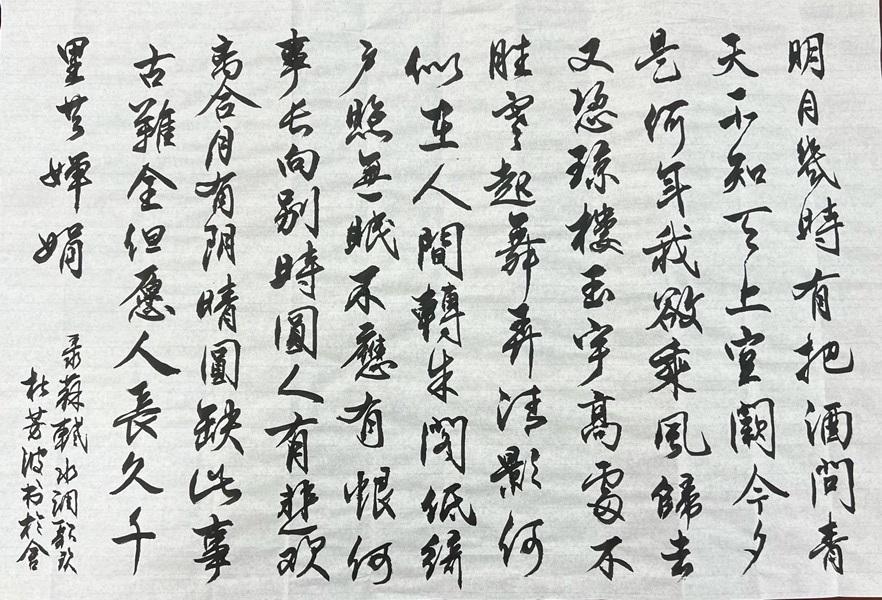 明月幾時有把酒問青
天不知天上宫闕今夕
是何年我欲乘風歸去
又恐瓊樓玉宇高處不
勝寒起舞弄清影何
似在人間轉朱閣低綺
户照無眠不應有恨何
事长向别時圓人有悲欢
离合月有阴晴圓缺此事
古難全但愿人長久千
里共嬋娟
录蘇軾水调歌
杜芳波书於